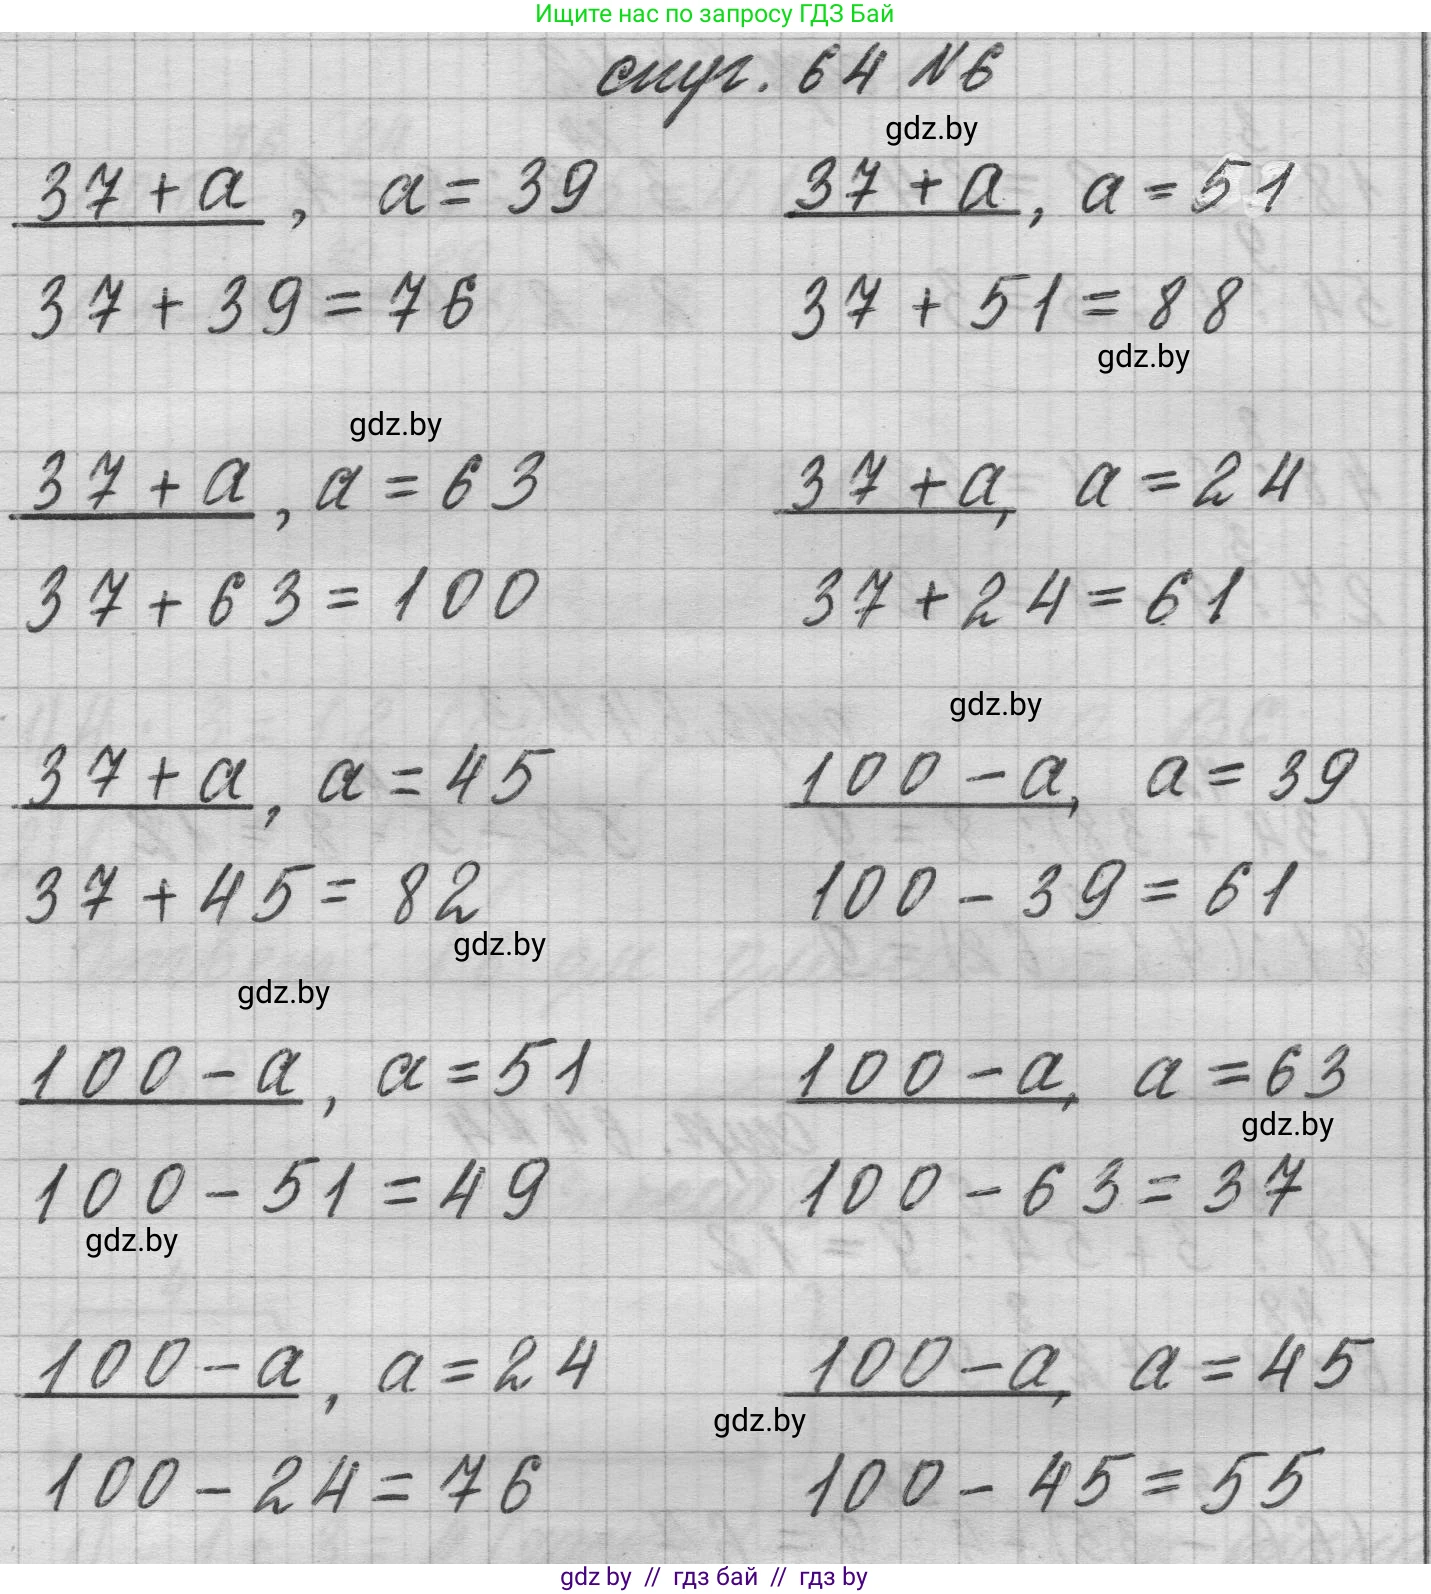 Ищите нас по запросу ГДЗ Бай
стр. 64 №6
gdz.by
37 + a, a = 39
37 + a, a = 51
37 + 39 = 76
37 + 51 = 88
gdz.by
gdz.by
37 + a, a = 63
37 + a, a = 24
37 + 63 = 100
37 + 24 = 61
gdz.by
37 + a, a = 45
100 - a, a = 39
37 + 45 = 82
100 - 39 = 61
gdz.by
gdz.by
100 - a, a = 51
100 - a, a = 63
gdz.by
100 - 51 = 49
100 - 63 = 37
gdz.by
100 - a, a = 24
100 - a, a = 45
gdz.by
100 - 24 = 76
100 - 45 = 55
gdz.by // гдз бай // гдз by